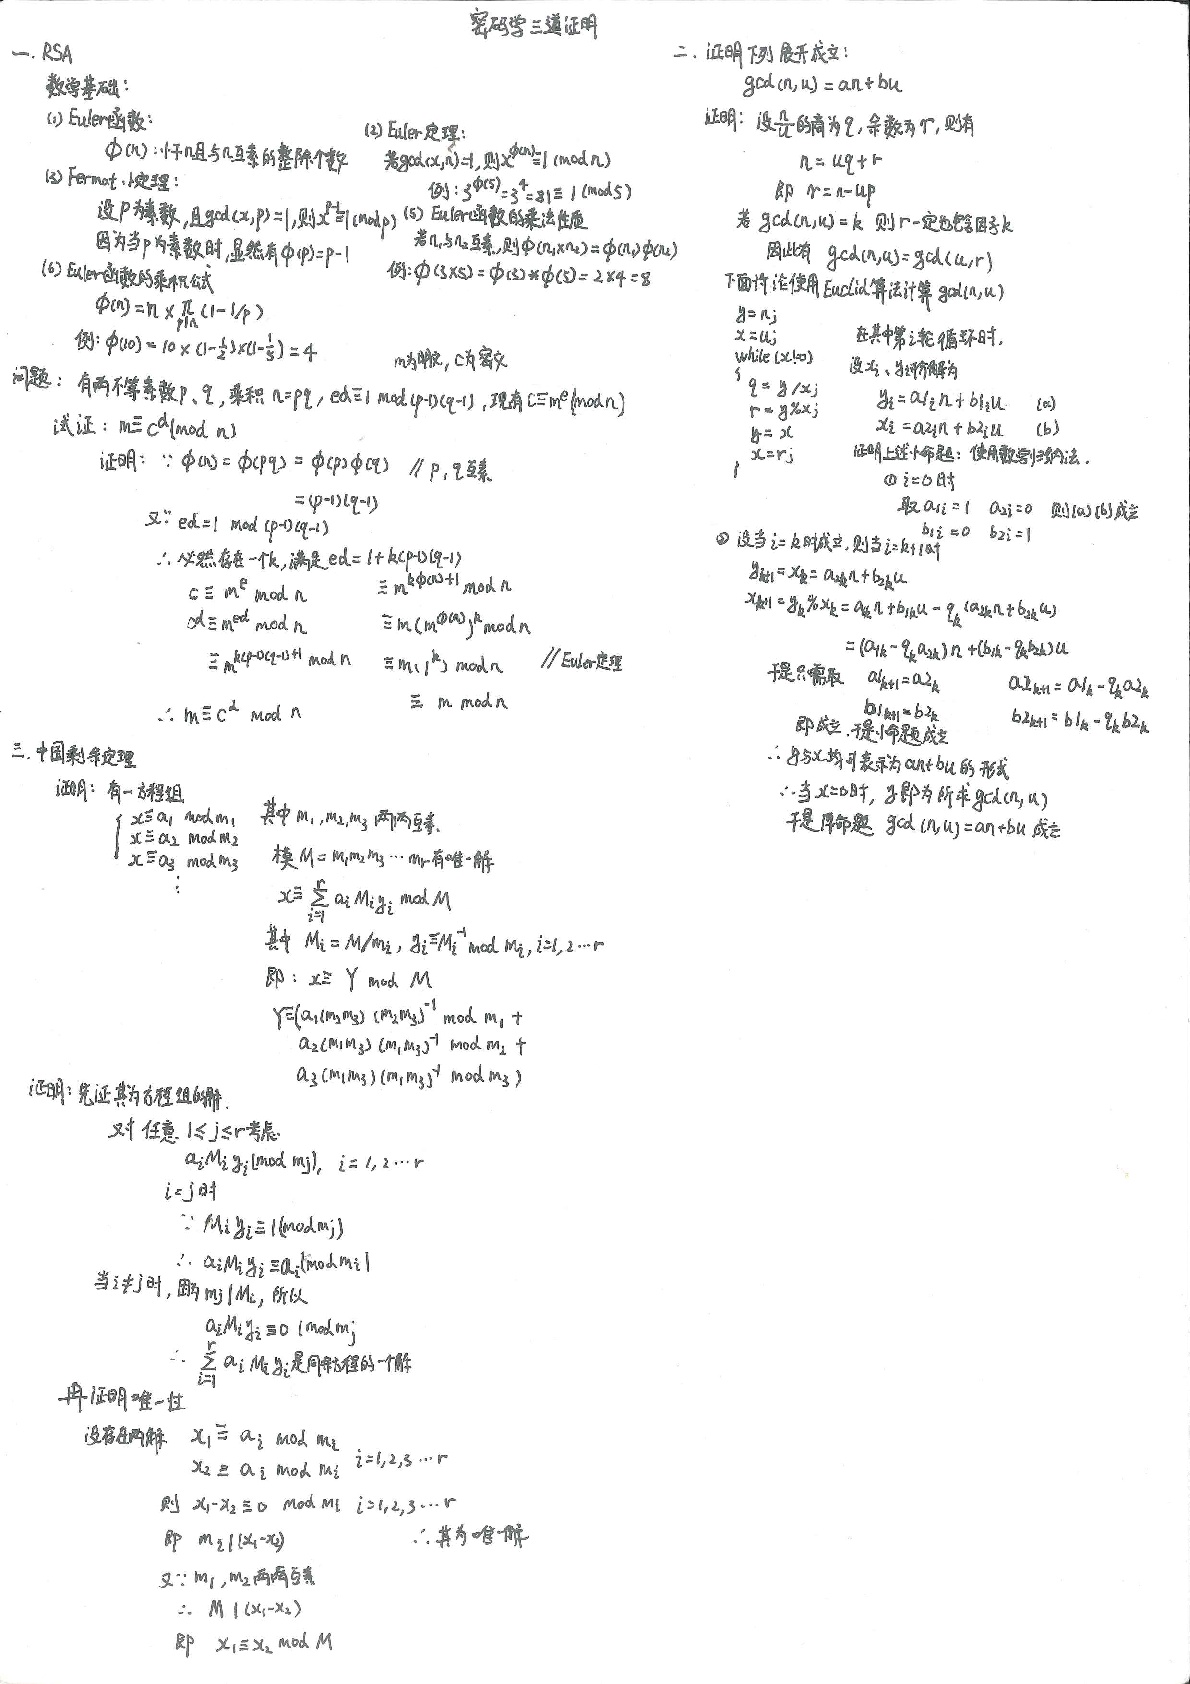 密码学三道证明
一. RSA
数学基础:
(1) Euler函数:
φ(n): 小于n且与n互素的整除个数
(2) Euler定理:
若gcd(x,n)=1, 则x^φ(n)≡1 (mod n)
例: 3^φ(5)=3^4=81≡1 (mod 5)
(3) Fermat小定理:
设P为素数, 且gcd(x,p)=1, 则x^(p-1)≡1(mod p)
因为当p为素数时, 显然有φ(p)=p-1
(5) Euler函数的乘法性质
若n₁与n₂互素, 则φ(n₁×n₂)=φ(n₁)φ(n₂)
例: φ(3×5)=φ(3)*φ(5)=2×4=8
(6) Euler函数的乘积公式
φ(n)=n×π(1-1/p)
p|n
例: φ(10)=10×(1-1/2)×(1-1/5)=4
m为明文, C为密文
问题: 有两不等素数p、q, 乘积n=pq, ed≡1 mod(p-1)(q-1), 现有C≡m^e(mod n)
试证: m≡C^d(mod n)
证明: ∵ φ(n)=φ(pq)=φ(p)φ(q) // p, q互素
=(p-1)(q-1)
又∵ ed=1 mod (p-1)(q-1)
∴ 必然存在一个k, 满足ed=1+k(p-1)(q-1)
c≡m^e mod n
c^d≡m^ed mod n
≡m^(k(p-1)(q-1)+1) mod n
≡m^(kφ(n)+1) mod n
≡m(m^φ(n))^k mod n
≡m(1^k) mod n // Euler定理
≡ m mod n
∴ m≡C^d mod n
三. 中国剩余定理
证明: 有一方程组
x≡a₁ mod m₁ 其中m₁,m₂,m₃两两互素.
x≡a₂ mod m₂
x≡a₃ mod m₃ 模M=m₁m₂m₃⋯mr有唯一解
⋮
x≡ r∑i=1 aᵢMᵢyᵢ mod M
其中 Mᵢ=M/mᵢ, yᵢ≡Mᵢ⁻¹ mod mᵢ, i=1,2⋯r
即: x≡ Y mod M
Y≡(a₁(m₂m₃) (m₂m₃)⁻¹ mod m₁ +
a₂(m₁m₃) (m₁m₃)⁻¹ mod m₂ +
a₃(m₁m₃) (m₁m₃)⁻¹ mod m₃)
证明: 先证其为方程组的解.
对任意 1≤j≤r考虑
aᵢMᵢyᵢ(mod mj), i=1,2⋯r
i=j时
∵ Mᵢyᵢ≡1(mod mj)
∴ aᵢMᵢyᵢ≡aᵢ(mod mᵢ)
当i≠j时, 因为mj|Mᵢ, 所以
aᵢMᵢyᵢ≡0 (mod mj
∴ r∑i=1 aᵢMᵢyᵢ是同余方程的一个解
再证明唯一性
设存在两解 x₁≡aᵢ mod mᵢ
x₂≡aᵢ mod mᵢ i=1,2,3⋯r
则 x₁-x₂≡0 mod mᵢ i=1,2,3⋯r
即 mᵢ|(x₁-x₂) ∴其为唯一解
又∵ m₁,m₂两两互素
∴ M|(x₁-x₂)
即 x₁≡x₂ mod M
二. 证明下列展开成立:
gcd(n,u)=an+bu
证明: 设n/u的商为q, 余数为r, 则有
n=uq+r
即 r=n-up
若gcd(n,u)=k 则r一定也包含因子k
因此有 gcd(n,u)=gcd(u,r)
下面讨论使用Euclid算法计算gcd(n,u)
y=n;
x=u;
while(x!=0)
{
q=y/x;
r=y%x;
y=x
x=r;
}
在其中第i轮循环时,
设xᵢ、yᵢ可分解为
yᵢ=a1ᵢn+b1ᵢu (a)
xᵢ=a2ᵢn+b2ᵢu (b)
证明上述小命题: 使用数学归纳法.
① i=0时
取a1ᵢ=1 a2ᵢ=0 则(a)(b)成立
b1ᵢ=0 b2ᵢ=1
② 设当i=k时成立, 则当i=k+1时
yᵢ₊₁=xk=a2kn+b2ku
xk+1=yk%xk=a1kn+b1ku-qk(a2kn+b2ku)
=(a1k-qka2k)n+(b1k-qkb2k)u
于是只需取 a1k+1=a2k a2k+1=a1k-qka2k
b1k+1=b2k b2k+1=b1k-qkb2k
即成立. 于是小命题成立
∴ y与x均可表示为an+bu的形式
∴ 当x=0时, y即为所求gcd(n,u)
于是原命题 gcd(n,u)=an+bu 成立